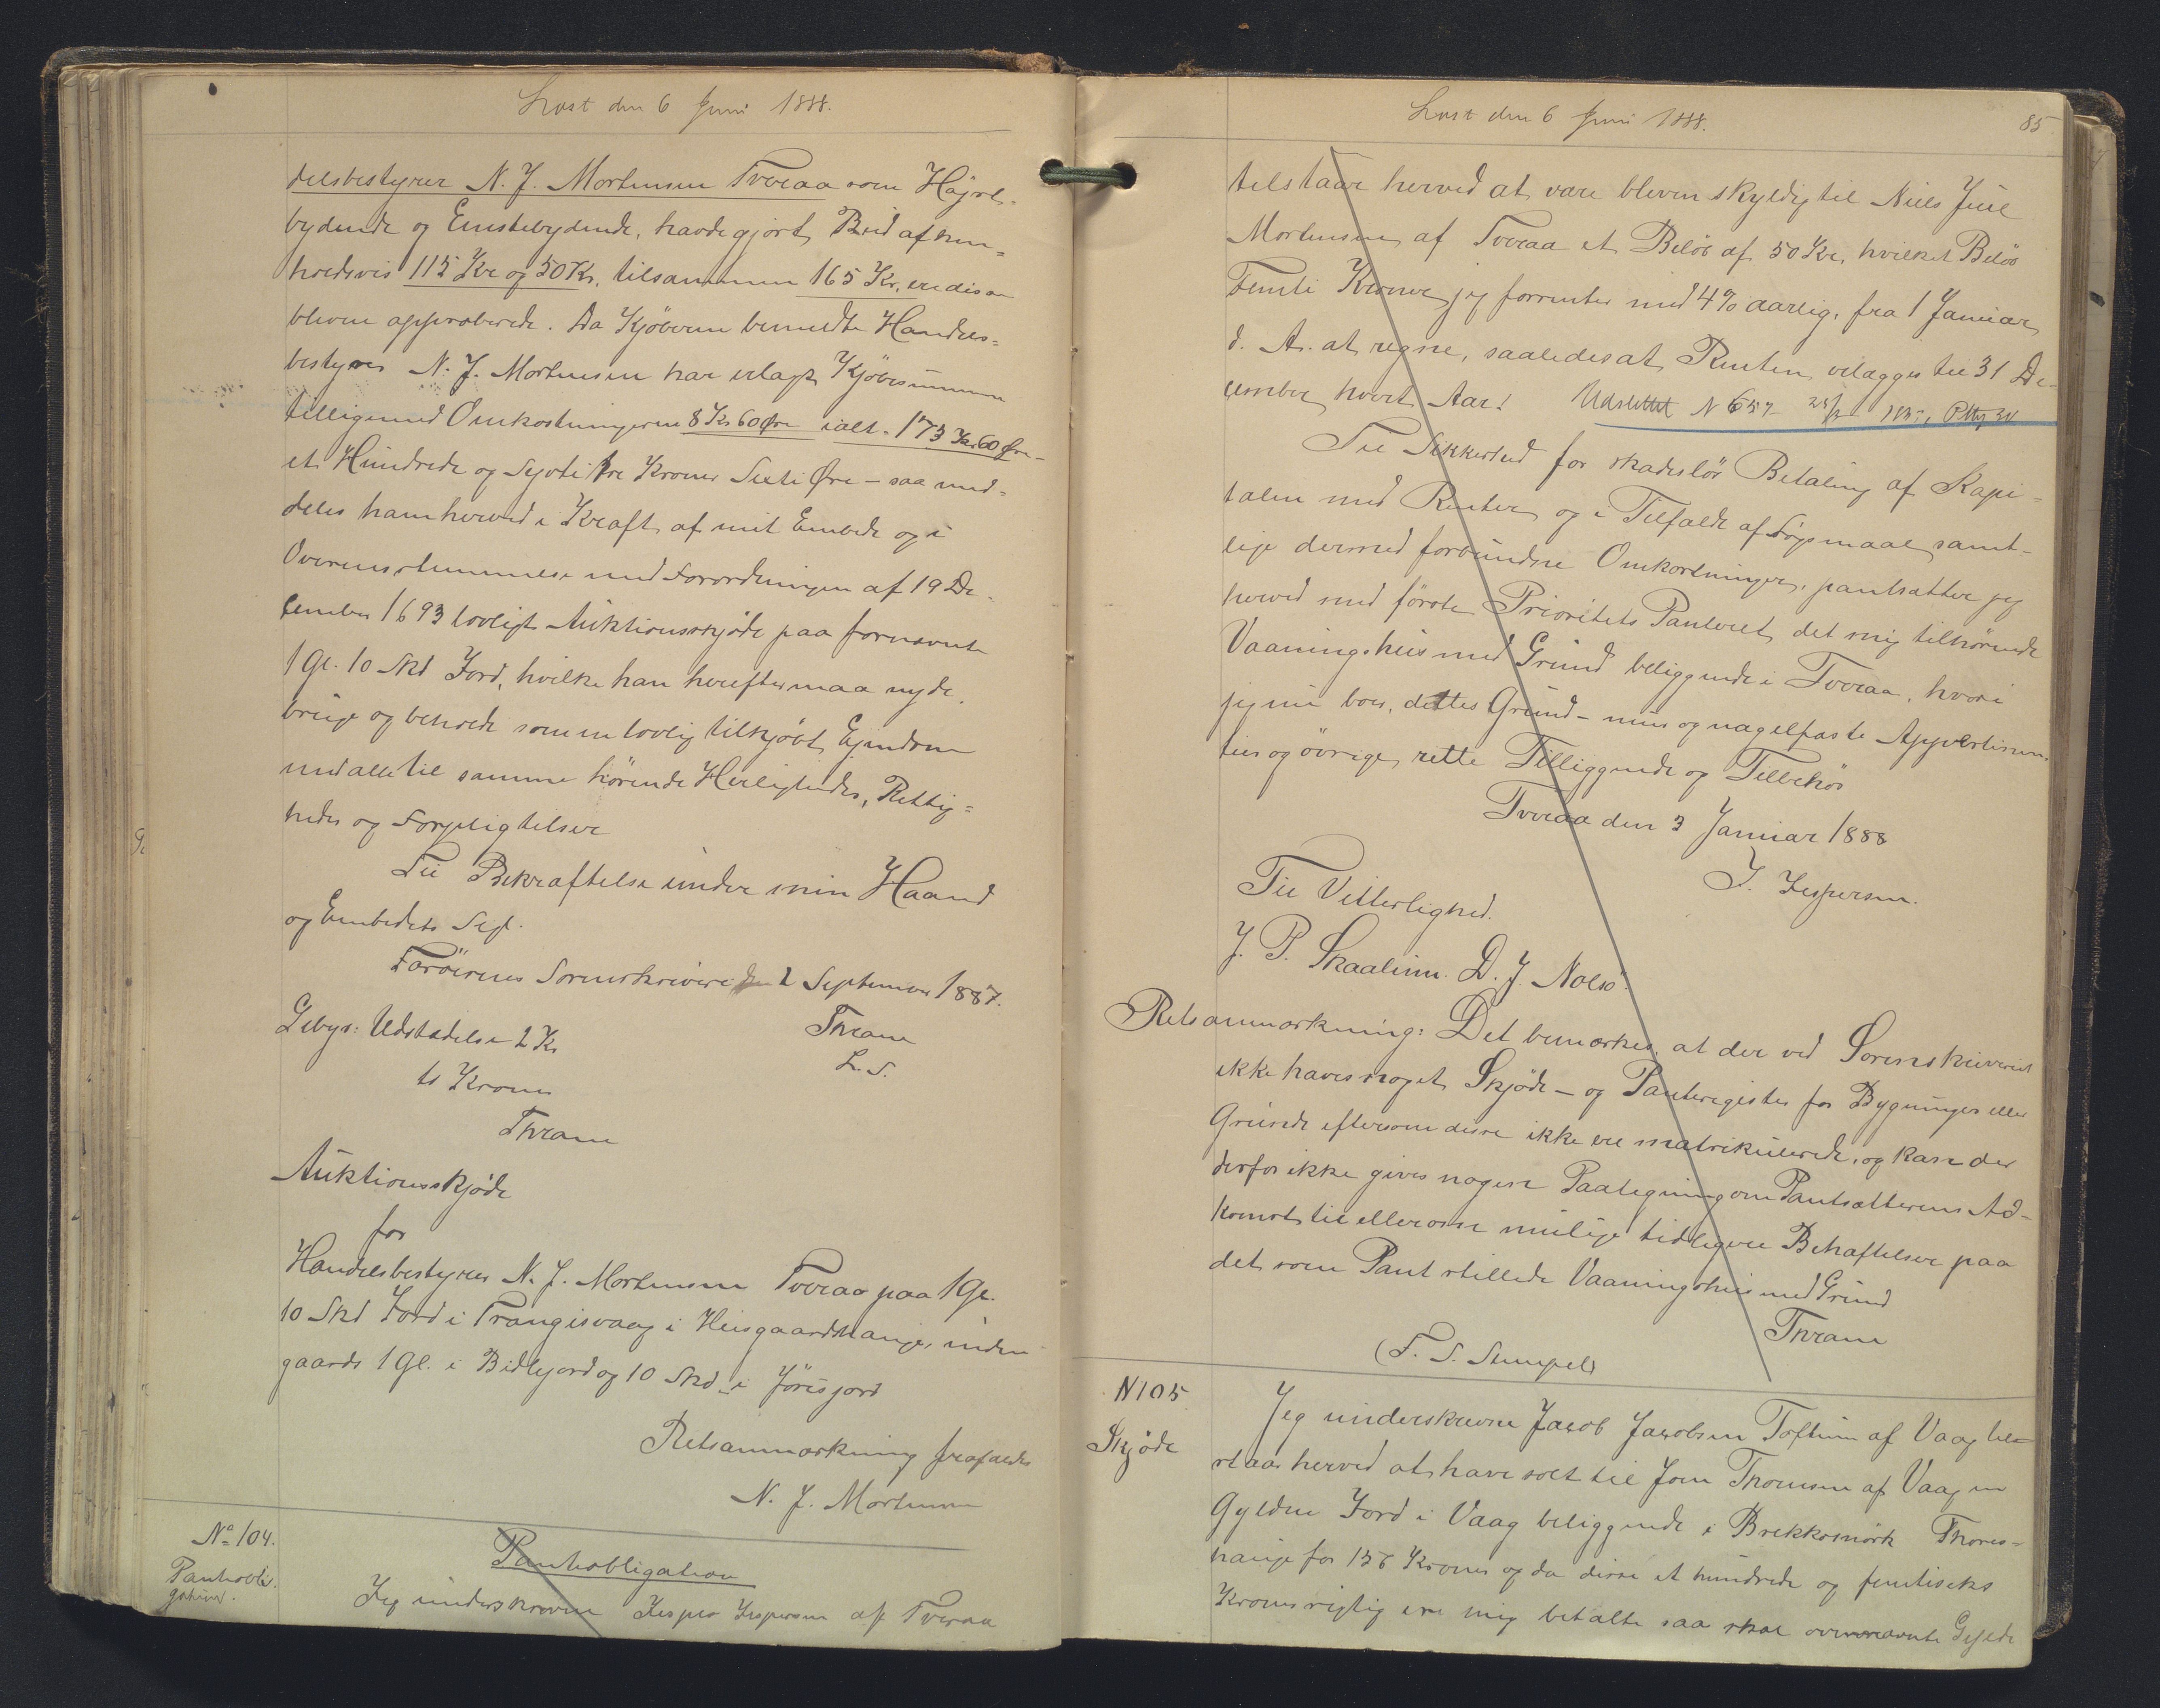 Læst den 6 Juni 1888.
delsbestyrer N. J. Mortensen Tveraa som Højst-
bydende og Enestebydende, havde gjort Bud af hen-
holdsvis 115 Kr og 50 Kr, tilsammen 165 Kr, ere disse
blevne approberede. Da Kjøberen bemeldte Handels-
bestyrer N. J. Mortensen har erlagt Kjøbesummen
tilligemed Omkostningerne 8 Kr 60 Øre ialt 173 Kr 60 Øre -
et Hundrede og Syvti tre Kroner Sexti Øre - saa med-
deles ham herved i Kraft af mit Embede og i
Overensstemmelse med Forordningen af 19 De-
cember 1693 lovligt Auktionsskjøde paa fornævnte
1 Gl. 10 Skd Jord, hvilke han herefter maa nyde,
bruge og beholde som en lovlig tilkjøbt Ejendom
med alle til samme hørende Herligheder, Rettig-
heder og Forpligtelser
Til Bekræftelse under min Haand
og Embedets Segl.
Færöernes Sorenskriveri den 2 September 1887.
Gebyr: Udstedelse 2 Kr
Thrane
to Kroner
L. S.
Thrane
Auktionsskjøde
for
Handelsbestyrer N. J. Mortensen Tveraa paa 1 Gl.
10 Skd Jord i Trangisvaag i Heisgaardshauge, inden
gaards 1 Gl. i Bidlejord og 10 Skd i Jórisjord
Retsanmærkning frafaldes
N. J. Mortensen
No 104.
Pantobli-
gation.
Pantobligation
Jeg underskrevne Jesper Jespersen af Tveraa
Læst den 6 Juni 1888.
85
tilstaar herved at være bleven skyldig til Niels Juul
Mortensen af Tveraa et Beløb af 50 Kr, hvilket Beløb
Femti Kroner jeg forrenter med 4% aarlig, fra 1 Januar
d. A. at regne, saaledes at Renten erlægges til 31 De-
cember hvert Aar. Udslettet N 657
Til Sikkerhed for skadesløs Betaling af Kapi-
talen med Renter og i Tilfælde af Søgsmaal samt-
lige dermed forbundne Omkostninger, pantsætter jeg
herved med første Prioritets Panteret det mig tilhørende
Vaaningshus med Grund beliggende i Tveraa, hvori
jeg nu boer, dettes Grund- mur og nagelfaste Appertinen-
tier og øvrige rette Tilliggende og Tilbehør
Tveraa den 3 Januar 1888
J. Jespersen.
Til Vitterlighed.
J. P. Skaalum. D. J. Nolsø.
Retsanmærkning: Det bemærkes, at der ved Sorenskriveriet
ikke haves noget Skjøde- og Panteregister for Bygninger eller
Grunde eftersom disse ikke ere matrikulerede, og kan der
derfor ikke gives nogen Paategning om Pantsætterens Ad-
komst til eller om mulige tidligere Behæftelser paa
det som Pant stillede Vaaningshus med Grund
Thrane
(F. S. Stempel)
N 105
Skjøde
Jeg underskrevne Jacob Jacobsen Toftum af Vaag til-
staar herved at have solt til Joen Thomsen af Vaag en
Gylden Jord i Vaag beliggende i Brekkomørk Thores-
hauge for 156 Kroner og da disse et hundrede og femtiseks
Kroner rigtig ere mig betalte saa skal ovennævnte Gylde